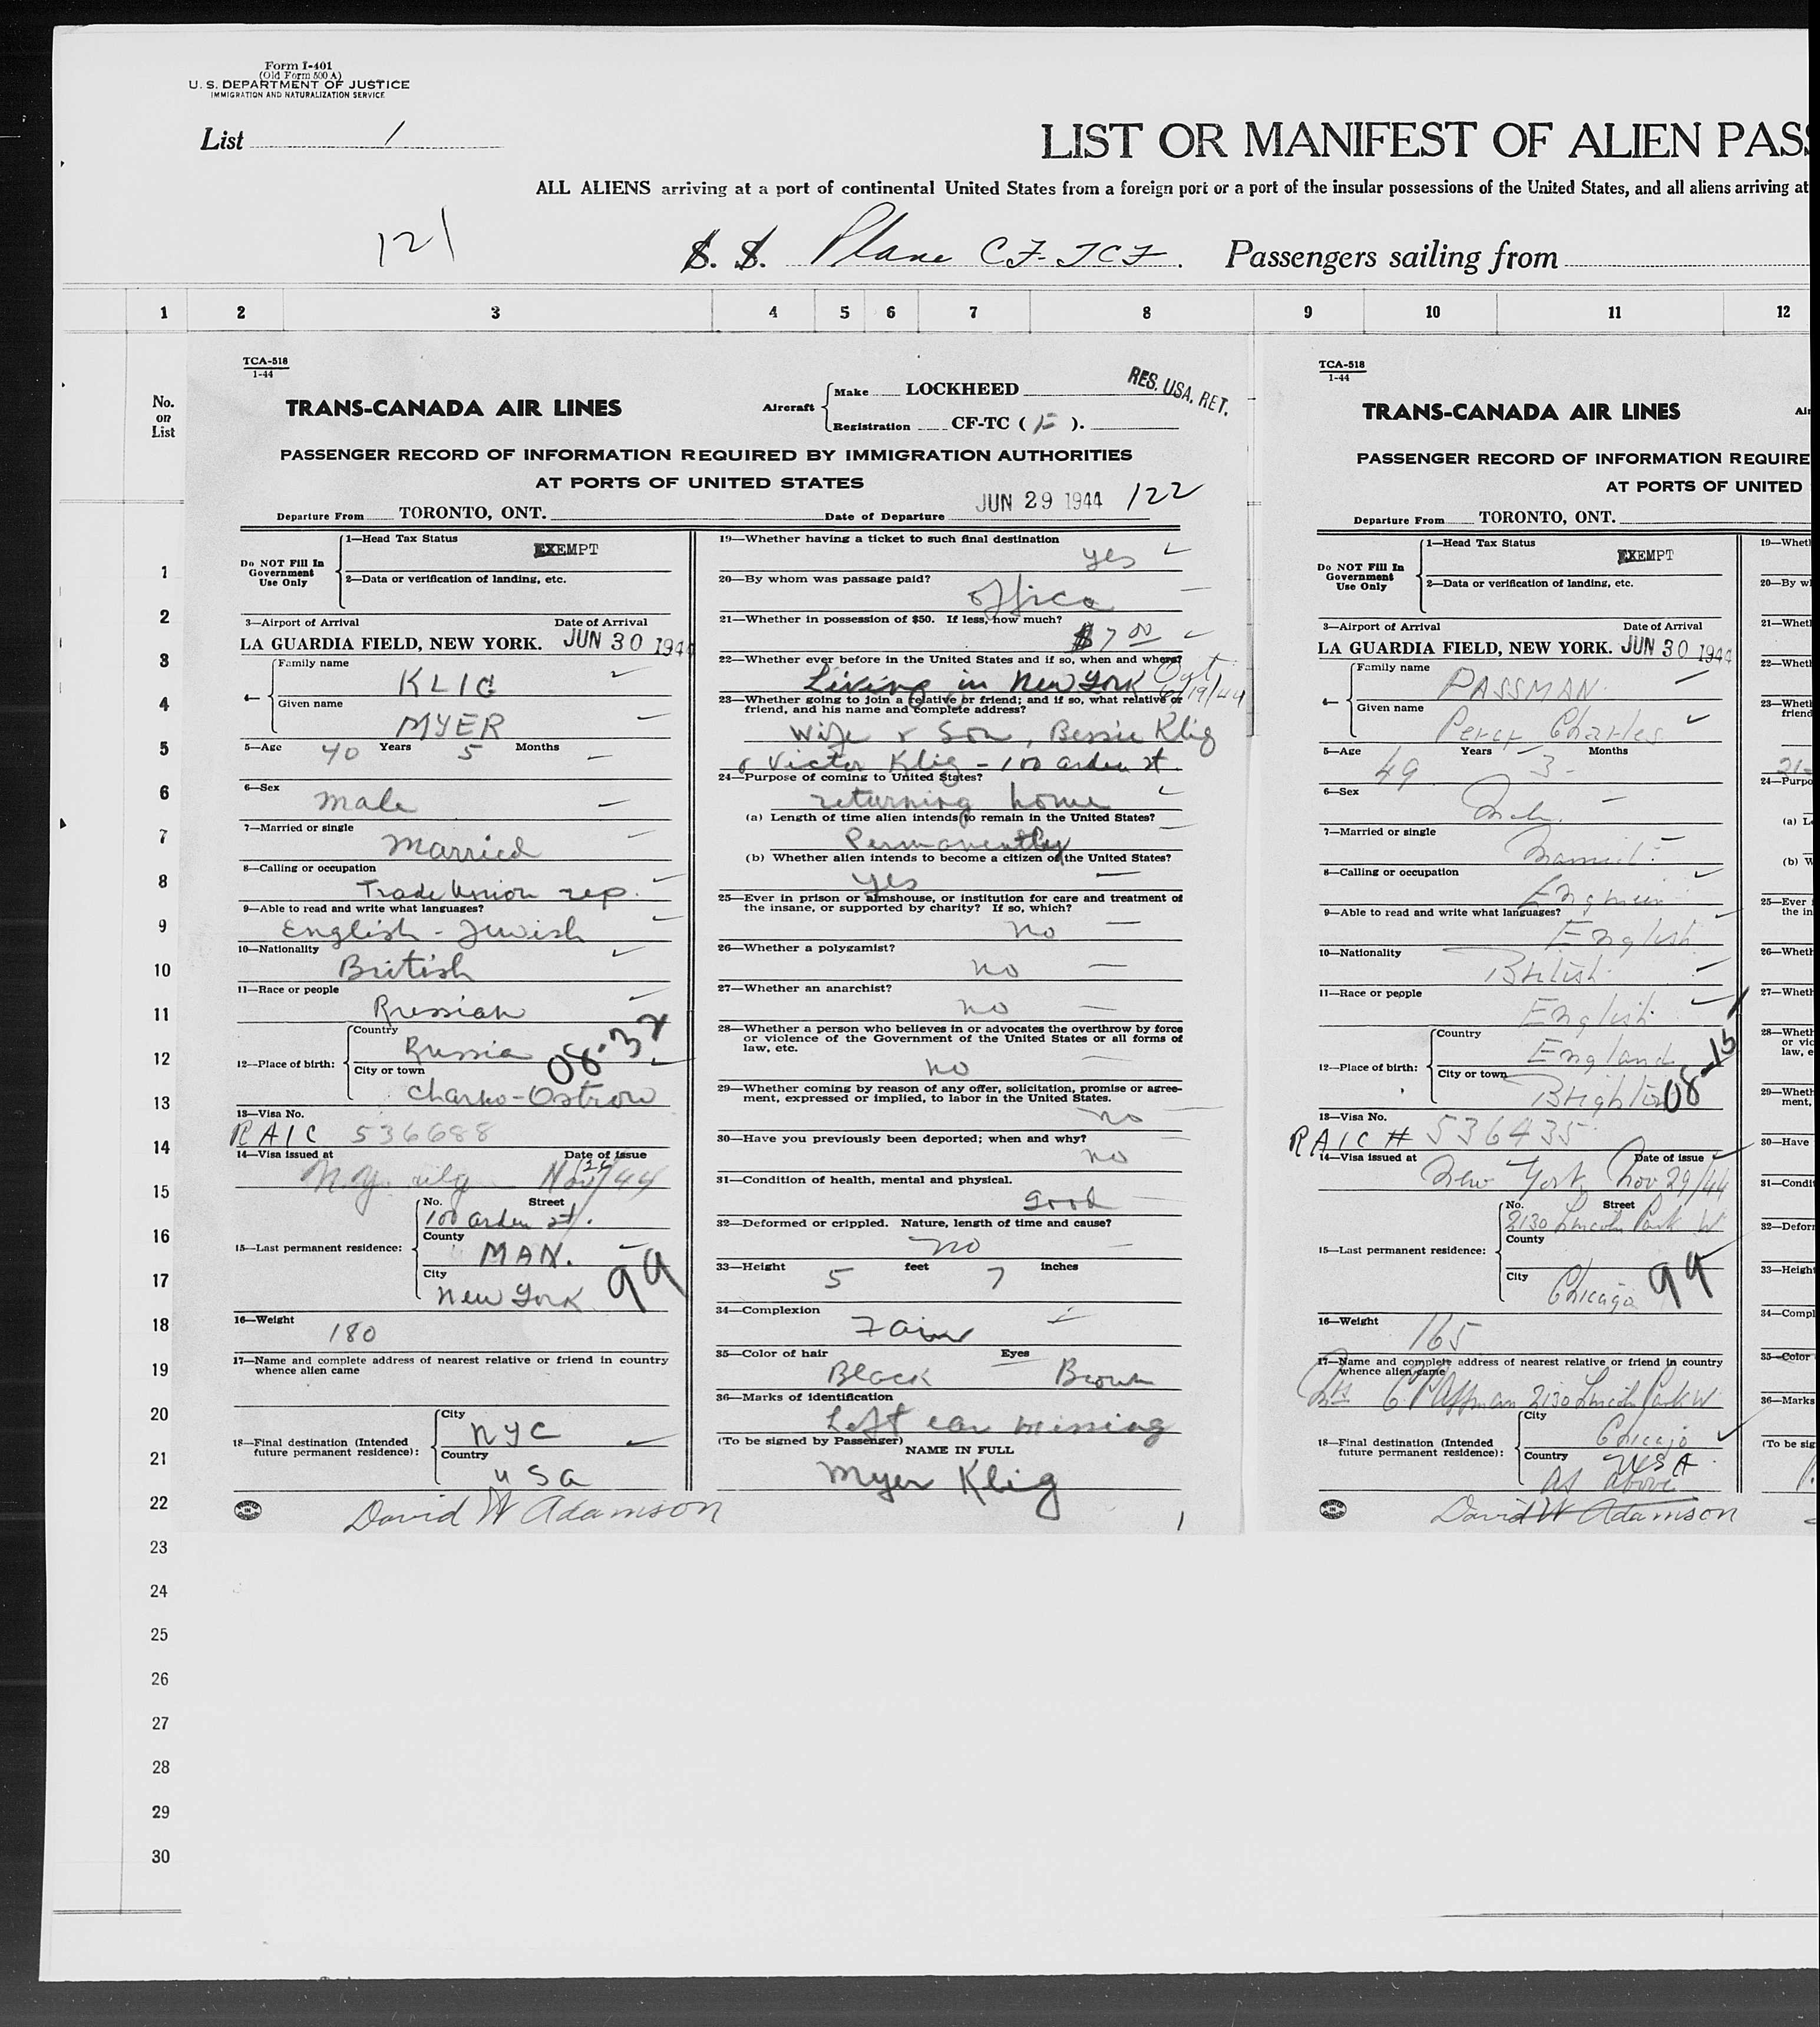 Form I-401
(Old Form 500 A)
U. S. DEPARTMENT OF JUSTICE
IMMIGRATION AND NATURALIZATION SERVICE
List 1
LIST OR MANIFEST OF ALIEN PAS
ALL ALIENS arriving at a port of continental United States from a foreign port or a port of the insular possessions of the United States, and all aliens arriving at
121
S. S. Plane CF-TCF. Passengers sailing from
1 2 3 4 5 6 7 8 9 10 11 12
No.
on
List
TCA-518
1-44
TRANS-CANADA AIR LINES
Aircraft
Make LOCKHEED
Registration CF-TC ( F ).
RES. USA. RET.
PASSENGER RECORD OF INFORMATION REQUIRED BY IMMIGRATION AUTHORITIES
AT PORTS OF UNITED STATES
Departure From TORONTO, ONT.
Date of Departure JUN 29 1944 122
Do NOT Fill In
Government
Use Only
1—Head Tax Status EXEMPT
2—Data or verification of landing, etc.
3—Airport of Arrival Date of Arrival
LA GUARDIA FIELD, NEW YORK. JUN 30 1944
4—
Family name
KLIG
Given name
MYER
5—Age 40 Years 5 Months
6—Sex
male
7—Married or single
Married
8—Calling or occupation
Trade Union rep.
9—Able to read and write what languages?
English - Jewish
10—Nationality
British
11—Race or people
Russian
12—Place of birth:
Country
Russia
08-32
City or town
Charko-Ostrow
13—Visa No.
RAIC 536688
14—Visa issued at Date of Issue
N.Y. Nov 26/44
15—Last permanent residence:
No. Street
100 Arden St.
County
MAN.
City
New York
99
16—Weight
180
17—Name and complete address of nearest relative or friend in country
whence alien came
18—Final destination (Intended
future permanent residence):
City
NYC
Country
USA
David W Adamson
19—Whether having a ticket to such final destination
yes
20—By whom was passage paid?
office
21—Whether in possession of $50. If less, how much?
$7.00
22—Whether ever before in the United States and if so, when and where?
Living in New York Out
6/19/44
23—Whether going to join a relative or friend; and if so, what relative or
friend, and his name and complete address?
Wife & Son, Bessie Klig
& Victor Klig - 100 Arden St.
24—Purpose of coming to United States?
returning home
(a) Length of time alien intends to remain in the United States?
Permanently
(b) Whether alien intends to become a citizen of the United States?
yes
25—Ever in prison or almshouse, or institution for care and treatment of
the insane, or supported by charity? If so, which?
no
26—Whether a polygamist?
no
27—Whether an anarchist?
no
28—Whether a person who believes in or advocates the overthrow by force
or violence of the Government of the United States or all forms of
law, etc.
no
29—Whether coming by reason of any offer, solicitation, promise or agree-
ment, expressed or implied, to labor in the United States.
no
30—Have you previously been deported; when and why?
no
31—Condition of health, mental and physical.
good
32—Deformed or crippled. Nature, length of time and cause?
no
33—Height 5 feet 7 inches
34—Complexion
Fair
35—Color of hair Eyes
Black Brown
36—Marks of identification
Left ear missing
(To be signed by Passenger)
NAME IN FULL
Myer Klig
1
TCA-518
1-44
TRANS-CANADA AIR LINES
Air
PASSENGER RECORD OF INFORMATION REQUIRE
AT PORTS OF UNITED
Departure From TORONTO, ONT.
Do NOT Fill In
Government
Use Only
1—Head Tax Status EXEMPT
2—Data or verification of landing, etc.
3—Airport of Arrival Date of Arrival
LA GUARDIA FIELD, NEW YORK. JUN 30 1944
4—
Family name
PASSMAN
Given name
Percy Charles
5—Age 49 Years 3 Months
6—Sex
Male
7—Married or single
Married
8—Calling or occupation
Engineer
9—Able to read and write what languages?
English
10—Nationality
British
11—Race or people
English
12—Place of birth:
Country
England
City or town
Brighton
08-15
13—Visa No.
RAIC # 536435
14—Visa issued at Date of issue
New York Nov 29/44
15—Last permanent residence:
No. Street
2130 Lincoln Park W
County
City
Chicago
99
16—Weight
165
17—Name and complete address of nearest relative or friend in country
whence alien came
Mrs C Passman 2130 Lincoln Park W
18—Final destination (Intended
future permanent residence):
City
Chicago
Country
USA
As above
David W Adamson
19—Wheth
20—By wh
21—Wheth
22—Wheth
23—Wheth
friend
24—Purpo
(a) Le
(b) W
25—Ever
the in
26—Wheth
27—Wheth
28—Wheth
or vic
law, e
29—Wheth
ment,
30—Have
31—Condi
32—Defor
33—Heigh
34—Compl
35—Color
36—Marks
(To be sig
1
2
3
4
5
6
7
8
9
10
11
12
13
14
15
16
17
18
19
20
21
22
23
24
25
26
27
28
29
30